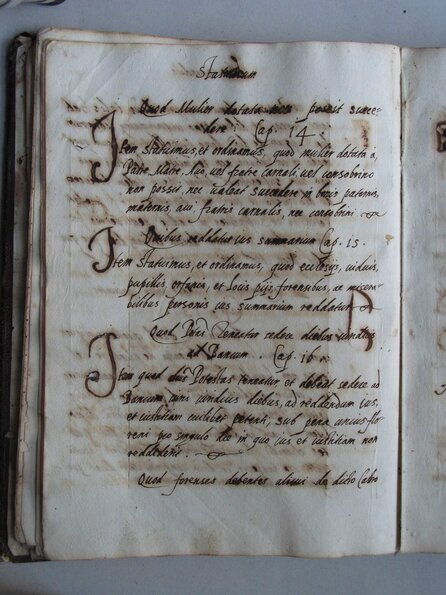 Statutorum
Quod Mulier dotata non possit succe-
dere. Cap. 14.
Item statuimus, et ordinamus, quod mulier dotata a
Patre, Matre, Auo, uel fratre carnali, uel consobrino
non possit, nec ualeat succedere in bonis paternis,
maternis, aui, fratris carnalis, nec consobrini.
Quibus reddatur ius summarium Cap. 15.
Item statuimus, et ordinamus, quod ecclesijs, uiduis,
pupillis, orfanis, et locis pijs, forensibus, ac misera-
bilibus personis ius summarium reddatur.
Quod Teneatur sedere diebus
ad Bancum. Cap. 16
Item quod Potestas teneatur et debeat sedere ad
Bancum diebus, ad reddendum ius,
et iustitiam cuilibet petenti, sub pena unius flo-
reni pro singulo die in quo ius et iustitiam non
redderet.
Quod forenses debentes alicui de dicto Castro